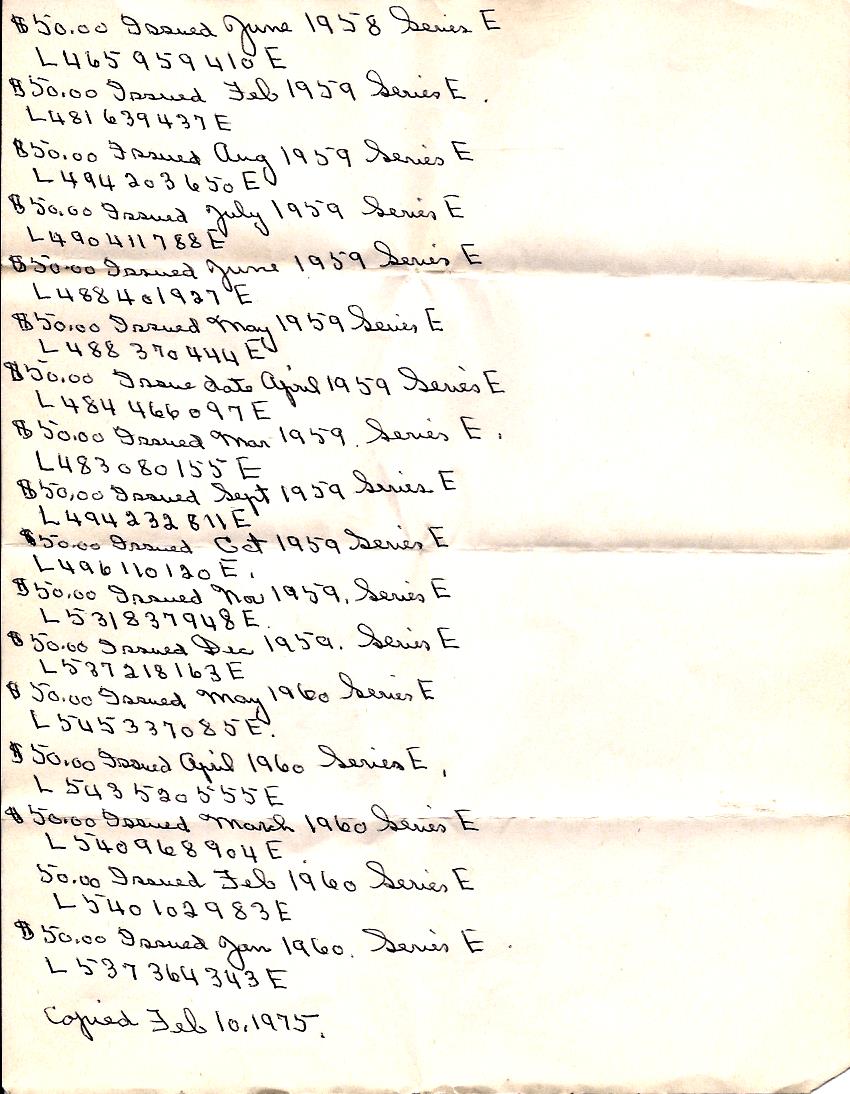 $50.00 Issued June 1958 Series E
L465 959 410 E
$50.00 Issued Feb 1959 Series E.
L481 639 437 E
$50.00 Issued Aug 1959 Series E
L494 203 650 E
$50.00 Issued July 1959 Series E
L490 411 788 E
$50.00 Issued June 1959 Series E
L488 401 927 E
$50.00 Issued May 1959 Series E
L488 370 444 E
$50.00 Issue date April 1959 Series E
L484 466 097 E
$50.00 Issued Mar 1959. Series E.
L483 080 155 E
$50.00 Issued Sept 1959 Series E
L494 232 811 E
$50.00 Issued Oct 1959 Series E
L496 110 120 E.
$50.00 Issued Nov 1959. Series E
L531 837 948 E.
$50.00 Issued Dec 1959. Series E
L537 218 163 E
$50.00 Issued May 1960 Series E
L545 337 085 E.
$50.00 Issued April 1960 Series E.
L 543 520 555 E
$50.00 Issued March 1960 Series E
L 540 968 904 E
50.00 Issued Feb 1960 Series E
L 540 102 983 E
$50.00 Issued Jan 1960. Series E
L 537 364 343 E
Copied Feb 10, 1975.